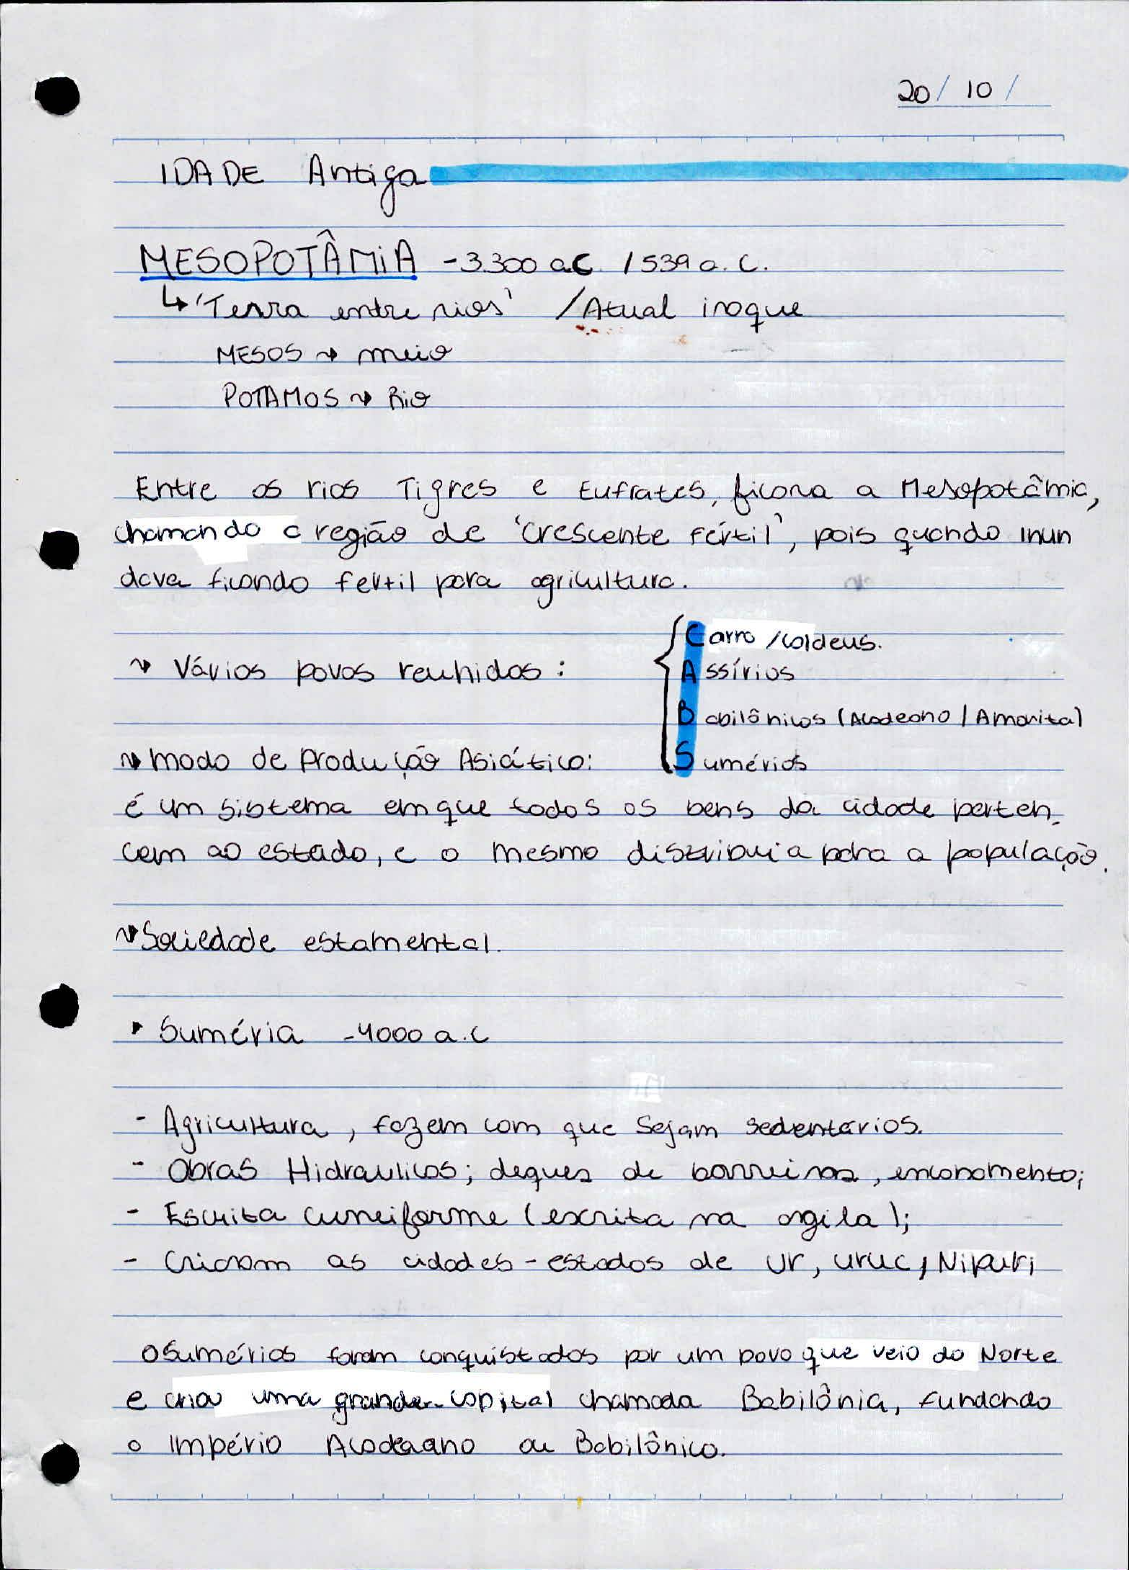 20/ 10 /
IDADE Antiga
MESOPOTÂMIA -3300 a.C. /539 a.C.
↳ 'Terra entre rios' /Atual iraque
MESOS ~> meio
POTAMOS ~> Rio
Entre os rios Tigres e Eufrates, ficava a Mesopotâmia,
chamando a região de 'Crescente Fértil', pois quando inun
dava ficando fertil para agricultura.
Carro /Caldeus.
~> Vários povos reunidos :
Assírios
Babilônicos (Acadeano / Amorita)
~> modo de Produção Asiático:
Sumérios
é um sistema em que todos os bens da cidade perten_
cem ao estado, e o mesmo distribuia para a população.
~> Sociedade estamental.
▸ Suméria -4000 a.C
- Agricultura, fazem com que sejam sedentários.
- Obras Hidraulicas; deques de barreiras, encanamento;
- Escrita cuneiforme (escrita na argila);
- Criaram as cidades-estados de Ur, uruc,
OSumérios foram conquistados por um povo que veio do Norte
e criou uma grande capital chamada Babilônia, fundando
o Império ou Babilônico.